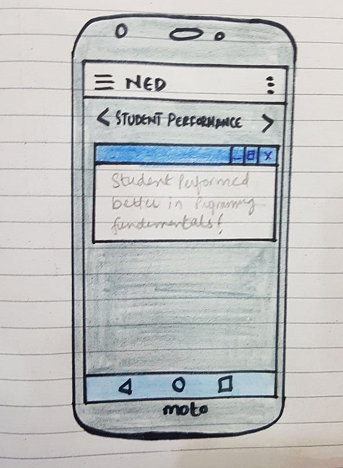 NED
STUDENT PERFORMANCE
Student Performed
better in Programing
fundamentals!
moto